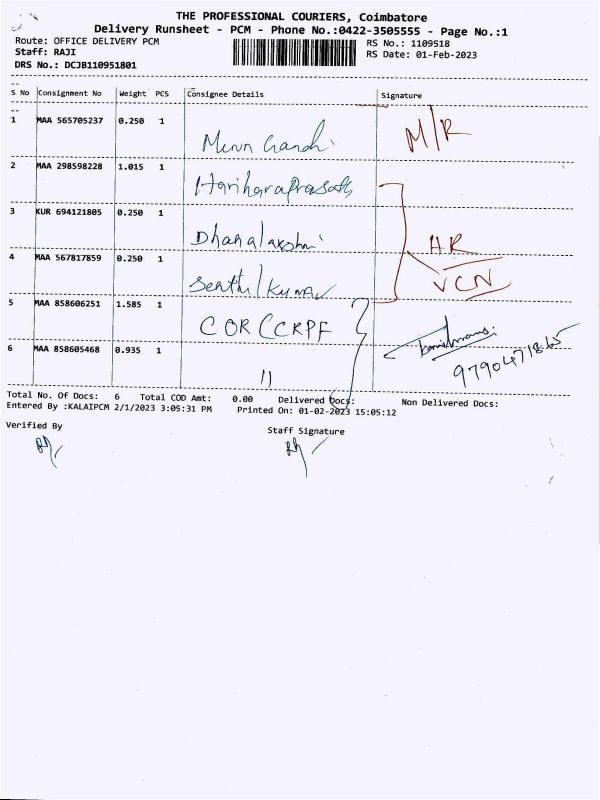 THE PROFESSIONAL COURIERS, Coimbatore
Delivery Runsheet - PCM - Phone No.:0422-3505555 - Page No.:1
Route: OFFICE DELIVERY PCM
RS No.: 1109518
Staff: RAJI
RS Date: 01-Feb-2023
DRS No.: DCJB110951801
S No Consignment No Weight PCS Consignee Details Signature
1 MAA 565705237 0.250 1
Gandhi M/R
2 MAA 298598228 1.015 1
Hariharaprasath
3 KUR 694121805 0.250 1
Dhanalakshmi HR
4 MAA 567817859 0.250 1
Senthil Kumar VCN
5 MAA 858606251 1.585 1
COR CCRPF
6 MAA 858605468 0.935 1 9790471865
11
Total No. Of Docs: 6 Total COD Amt: 0.00 Delivered Docs: Non Delivered Docs:
Entered By :KALAIPCM 2/1/2023 3:05:31 PM Printed On: 01-02-2023 15:05:12
Verified By
Staff Signature